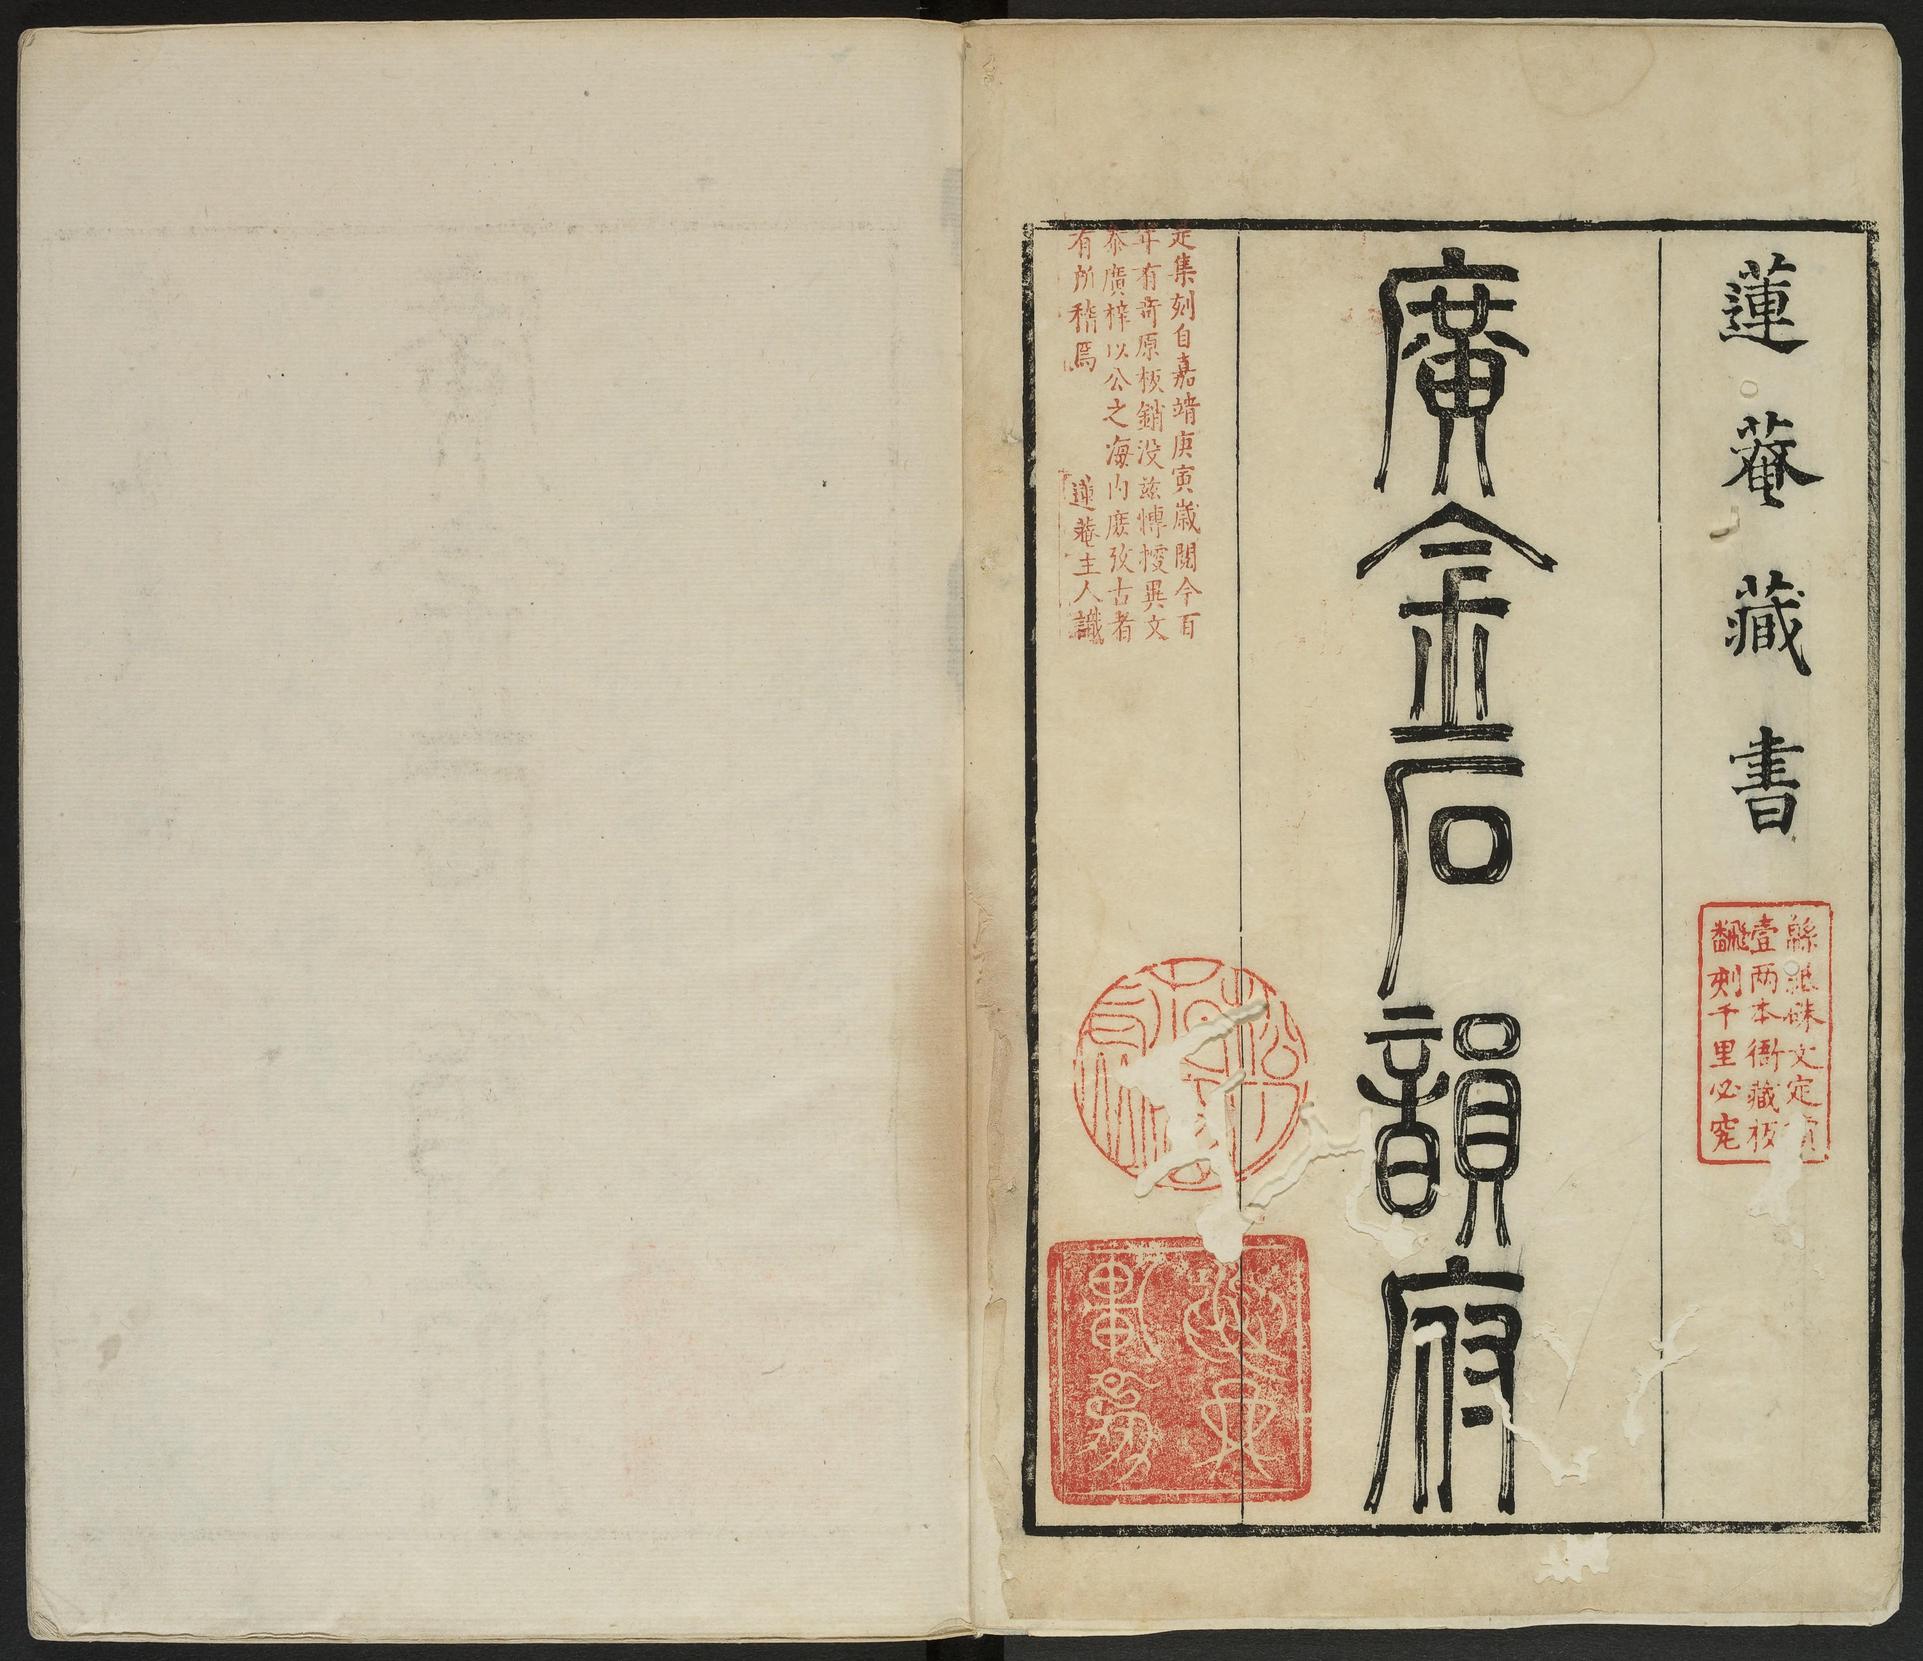 蓮菴藏書
緜紙硃文定價
壹两本衙藏板
飜刻千里必究
廣金石韻府
是集刻自嘉靖庚寅歲閱今百
年有奇原板銷没兹慱異文
叅廣梓以公之海内庻攷古者
有所稽焉
蓮菴主人識